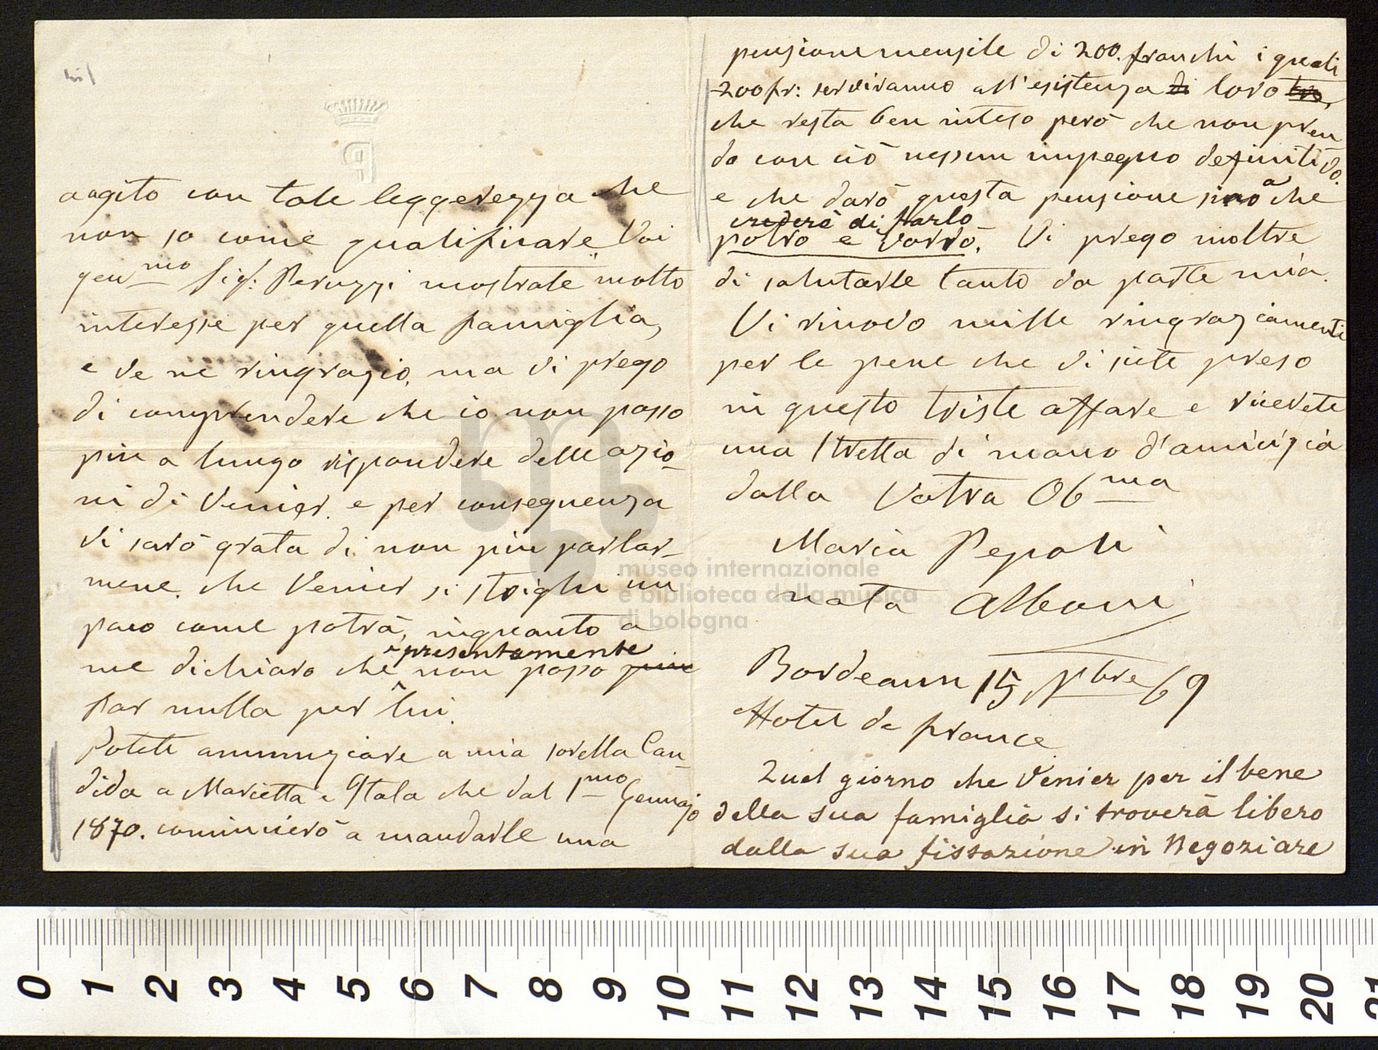 aagito con tale leggerezza che
non so come qualificare. Voi
gen.mo Sig: Peruzzi mostrate molto
interesse per quella famiglia,
e ve ne ringrazio, ma vi prego
di comprendere che io non posso
più a lungo rispondere delle azio-
ni di Venier. e per conseguenza
vi sarò grata di non più parlar-
mene. che Venier si strighi un
poco come potrà, inquanto a
me dichiaro che presentemente non posso più
far nulla per lui.
Potete annunziare a mia sorella Can-
dida a Marietta e Itala che dal 1.mo Gennajo
1870. comincierò a mandarle una
pensione mensile di 200. franchi i quali
200 fr: serviranno all'esistenza di loro tre,
che resta ben inteso però che non pren
do con ciò nessun impegno definitivo.
e che darò questa pensione sino a che
crederò di farlo
potrò e vorrò. Vi prego inoltre
di salutarle tanto da parte mia.
Vi rinovo mille ringraziamenti
per le pene che vi siete preso
in questo triste affare e ricevete
una stretta di mano d'amicizia
dalla Vostra Ob.ma
Maria Pepoli
nata Alboni
Bordeaux 15 9bre 69
Hotel de france
Quel giorno che Venier per il bene
della sua famiglia si troverà libero
dalla sua fissazione in Negoziare
museo internazionale
e biblioteca della musica
di bologna
0 1 2 3 4 5 6 7 8 9 10 11 12 13 14 15 16 17 18 19 20 21